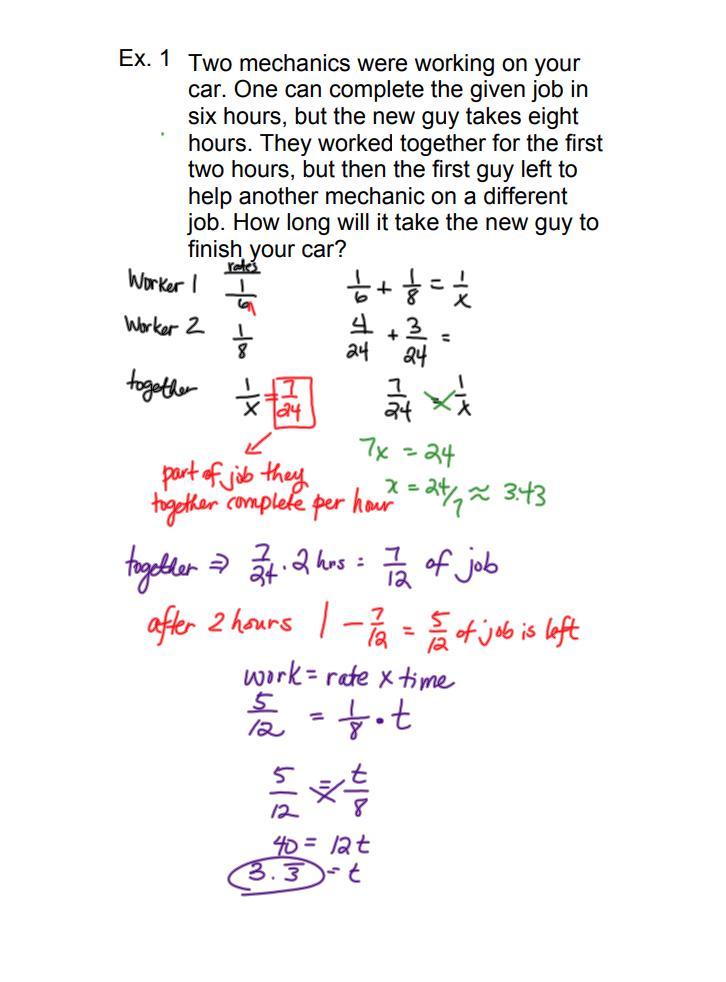 Ex. 1 Two mechanics were working on your
car. One can complete the given job in
six hours, but the new guy takes eight
hours. They worked together for the first
two hours, but then the first guy left to
help another mechanic on a different
job. How long will it take the new guy to
finish your car?
rates
Worker 1 1/6 1/6 + 1/8 = 1/x
Worker 2 1/8 4/24 + 3/24 =
together 1/x = 7/24 7/24 = 1/x
7x = 24
part of job they
together complete per hour x = 24/7 ≈ 3.43
together ⇒ 7/24 · 2 hrs = 7/12 of job
after 2 hours 1 - 7/12 = 5/12 of job is left
work = rate x time
5/12 = 1/8 · t
5/12 = t/8
40 = 12t
3.3̅ = t